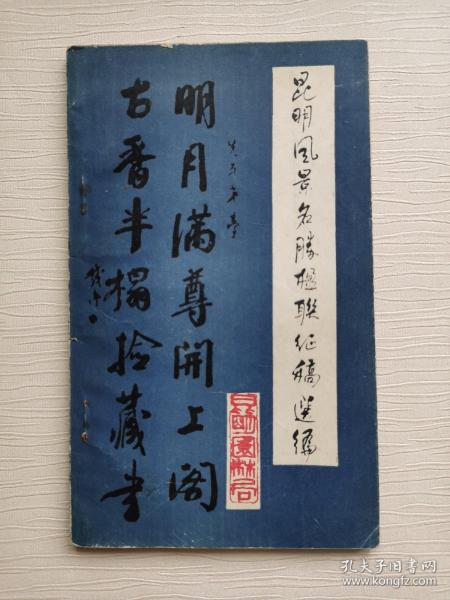 昆明风景名勝楹聯征稿選編
明月满尊開上阁
古香半榻撿藏书
孔夫子旧书网
www.kongfz.com